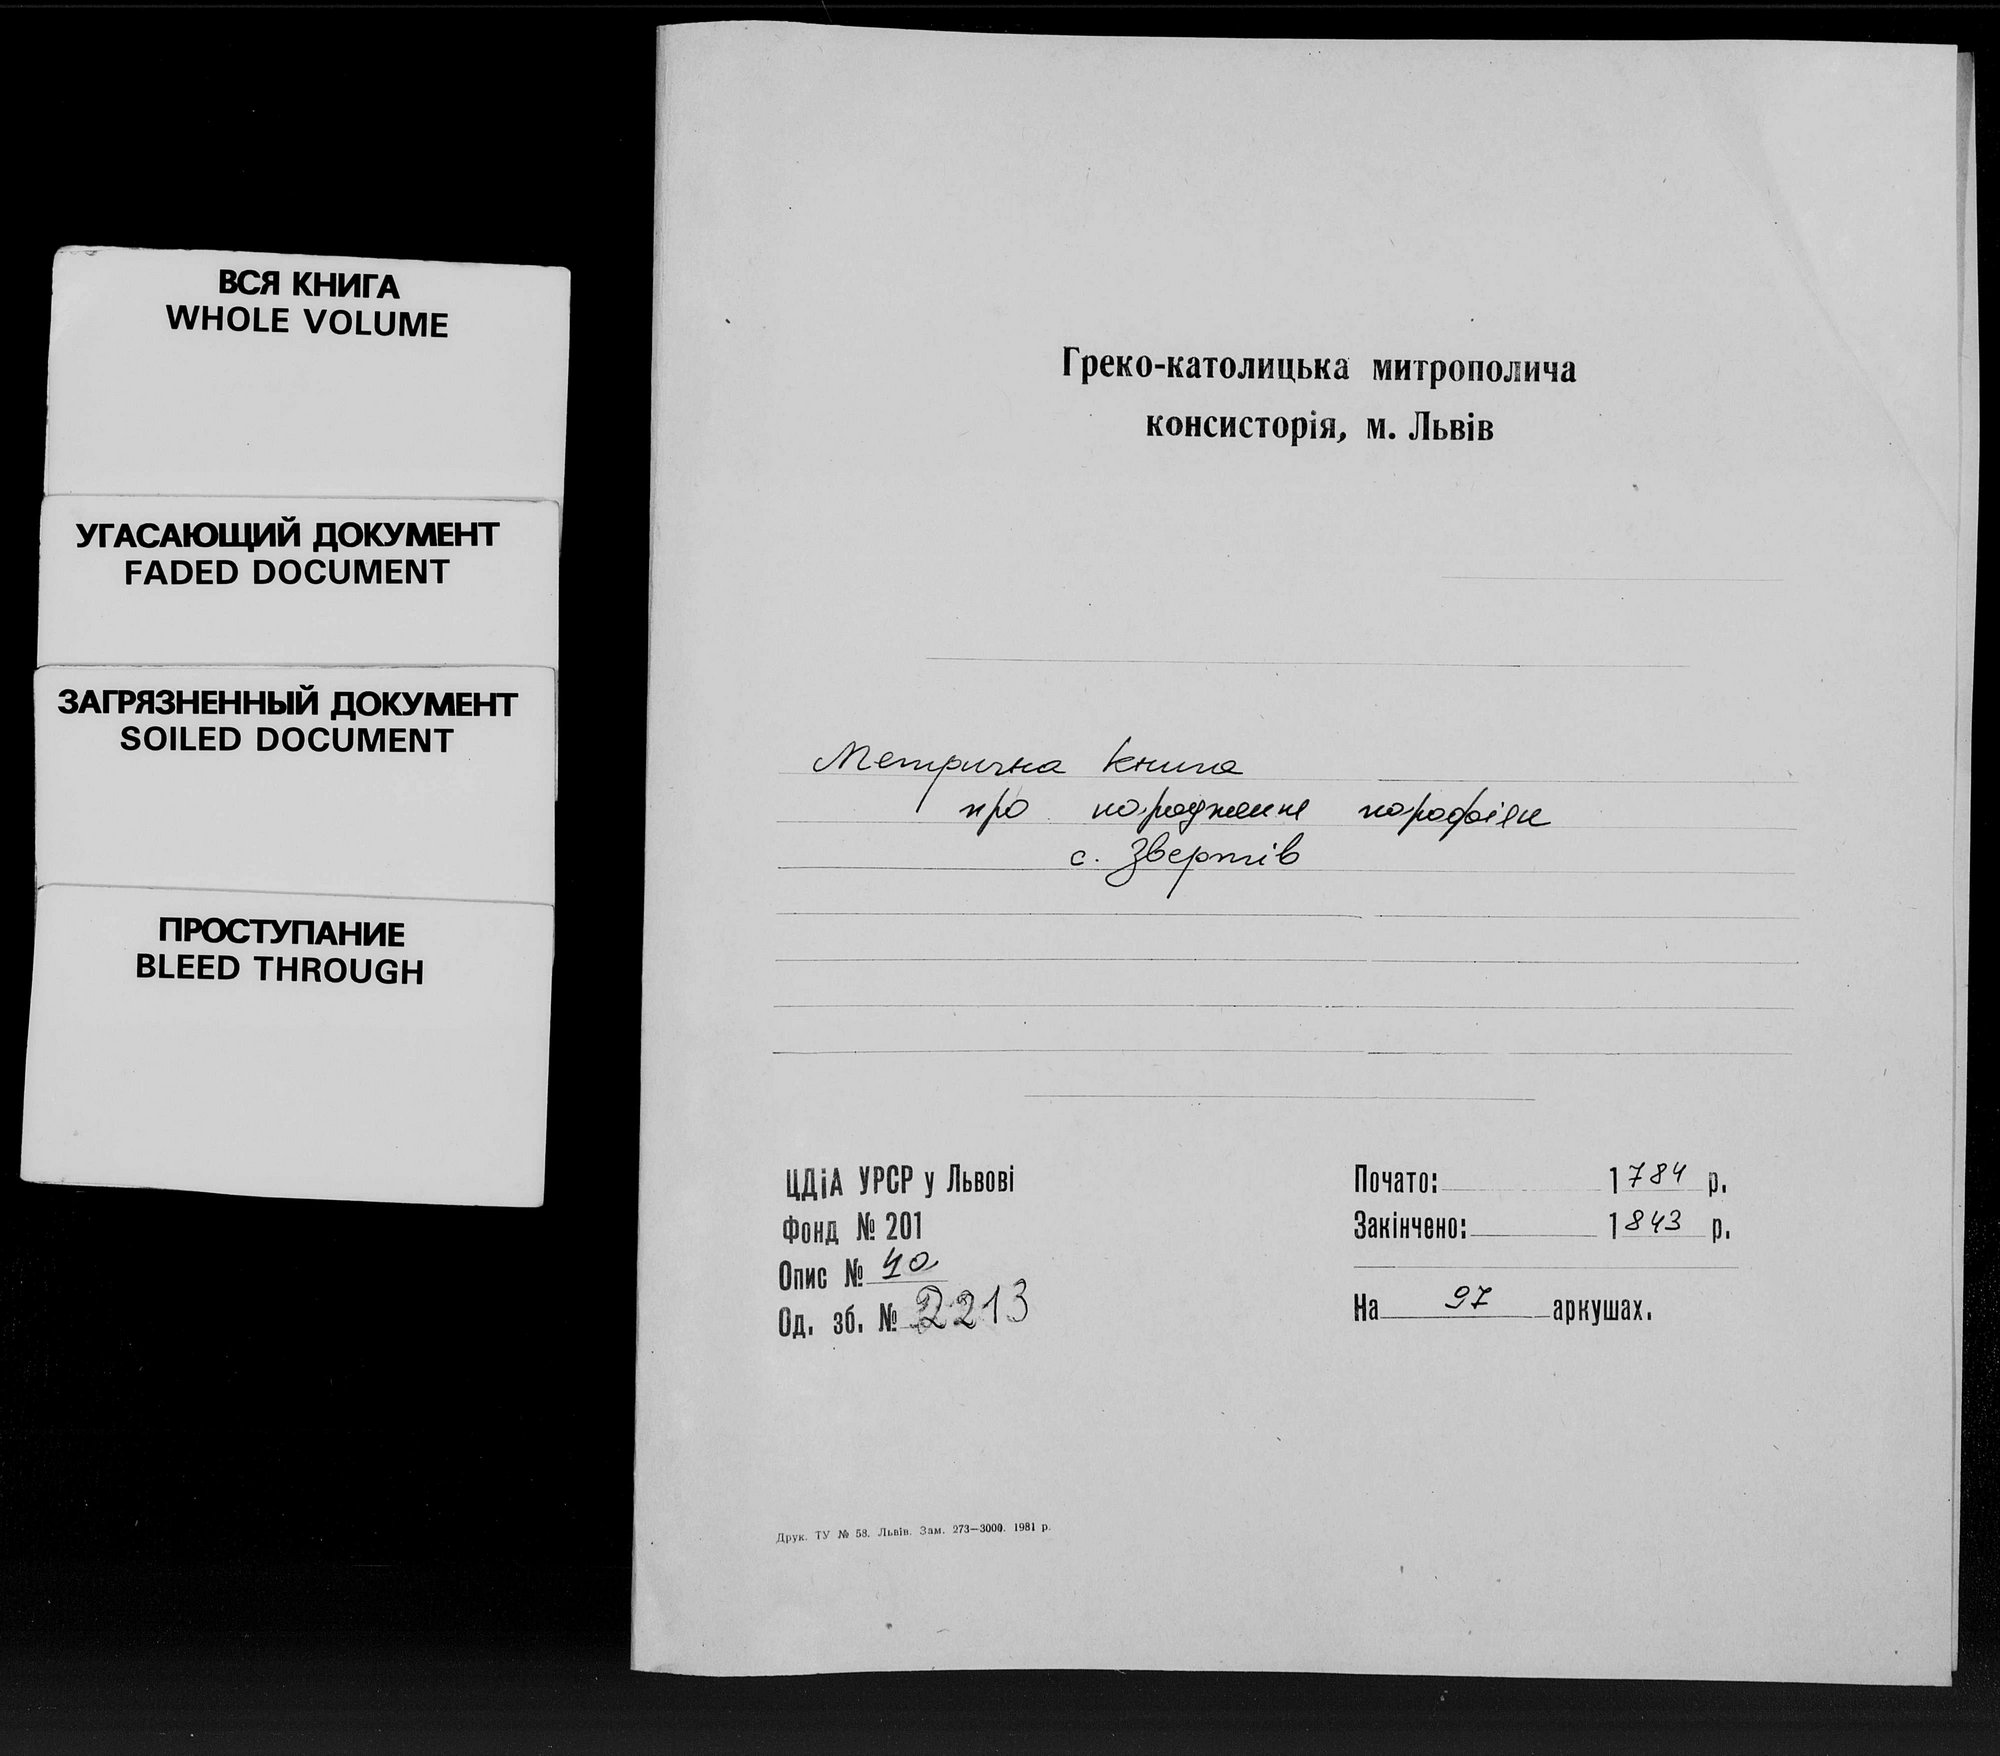 ВСЯ КНИГА
WHOLE VOLUME
УГАСАЮЩИЙ ДОКУМЕНТ
FADED DOCUMENT
ЗАГРЯЗНЕННЫЙ ДОКУМЕНТ
SOILED DOCUMENT
ПРОСТУПАНИЕ
BLEED THROUGH
Греко-католицька митрополича
консисторія, м. Львів
Метрична книга
про народження парафіян
с. Звертів
ЦДІА УРСР у Львові
Фонд № 201
Опис № 4а
Од. зб. № 2213
Почато: 1784 р.
Закінчено: 1843 р.
На 97 аркушах.
Друк. ТУ № 58. Львів. Зам. 273—3000. 1981 р.